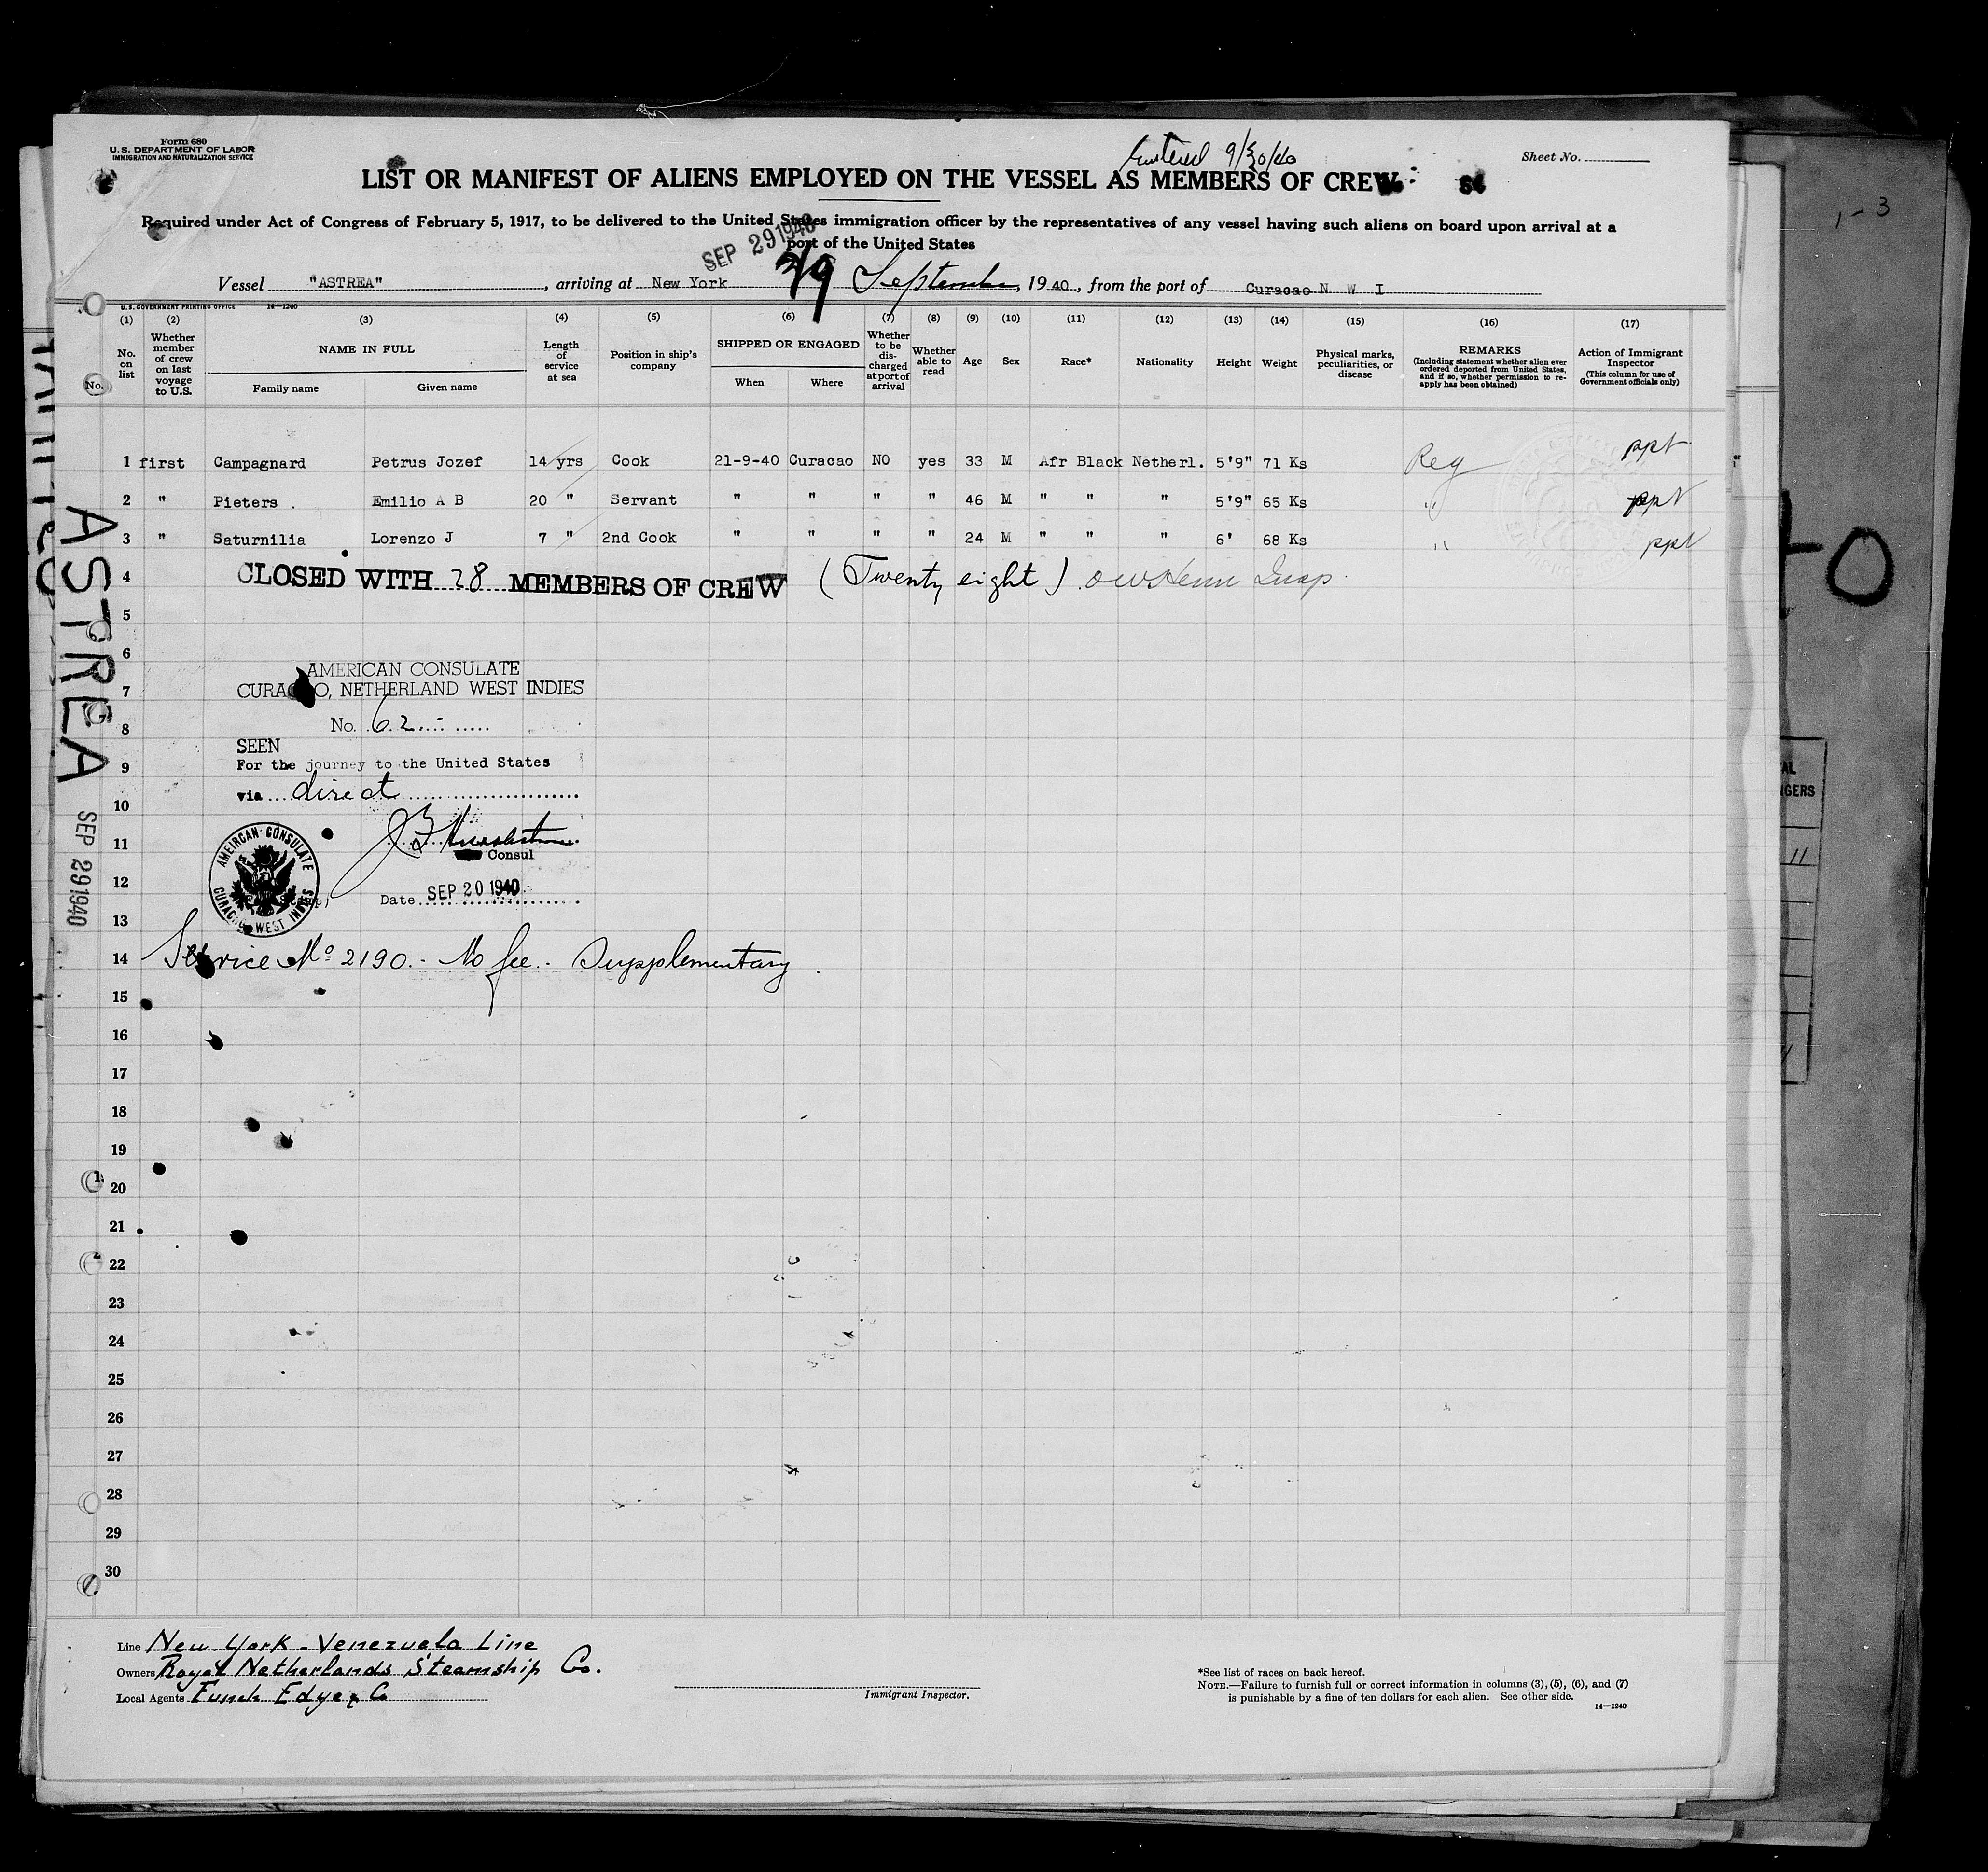 Form 680
U.S. DEPARTMENT OF LABOR
IMMIGRATION AND NATURALIZATION SERVICE
9/30/40
Sheet No.
LIST OR MANIFEST OF ALIENS EMPLOYED ON THE VESSEL AS MEMBERS OF CREW
Required under Act of Congress of February 5, 1917, to be delivered to the United States immigration officer by the representatives of any vessel having such aliens on board upon arrival at a
port of the United States
SEP 29 1940
Vessel "ASTREA", arriving at New York 29 September, 1940, from the port of Curacao N W I
U.S. GOVERNMENT PRINTING OFFICE 14—1240
(1) (2) (3) (4) (5) (6) (7) (8) (9) (10) (11) (12) (13) (14) (15) (16) (17)
No. on list
Whether member of crew on last voyage to U.S.
NAME IN FULL
Family name
Given name
Length of service at sea
Position in ship's company
SHIPPED OR ENGAGED
When
Where
Whether to be dis-charged at port of arrival
Whether able to read
Age
Sex
Race*
Nationality
Height
Weight
Physical marks, peculiarities, or disease
REMARKS
(Including statement whether alien ever ordered deported from United States, and if so, whether permission to re-apply has been obtained)
Action of Immigrant Inspector
(This column for use of Government officials only)
No.
1 first Campagnard Petrus Jozef 14 yrs Cook 21-9-40 Curacao NO yes 33 M Afr Black Netherl. 5'9" 71 Ks Reg ppt
2 " Pieters . Emilio A B 20 " Servant " " " " 46 M " " " 5'9" 65 Ks " ppt
3 " Saturnilia Lorenzo J 7 " 2nd Cook " " " " 24 M " " " 6' 68 Ks " ppt
4 CLOSED WITH 28 MEMBERS OF CREW (Twenty eight) Insp.
5
6
AMERICAN CONSULATE
7 CURACAO, NETHERLAND WEST INDIES
8 No. 62
SEEN
9 For the journey to the United States
via direct
10
11
Consul
AMEIRCAN CONSULATE
CURACAO WEST INDIES
12 Date SEP 20 1940
13
14 Service No 2190.- No fee.- Supplementary
15
16
17
18
19
20
21
22
23
24
25
26
27
28
29
30
ASTREA
SEP 29 1940
Line New York - Venezuela Line
Owners Royal Netherlands Steamship Co.
Local Agents Funch Edye & Co
Immigrant Inspector.
*See list of races on back hereof.
NOTE.—Failure to furnish full or correct information in columns (3), (5), (6), and (7)
is punishable by a fine of ten dollars for each alien. See other side.
14—1240
1-3
11